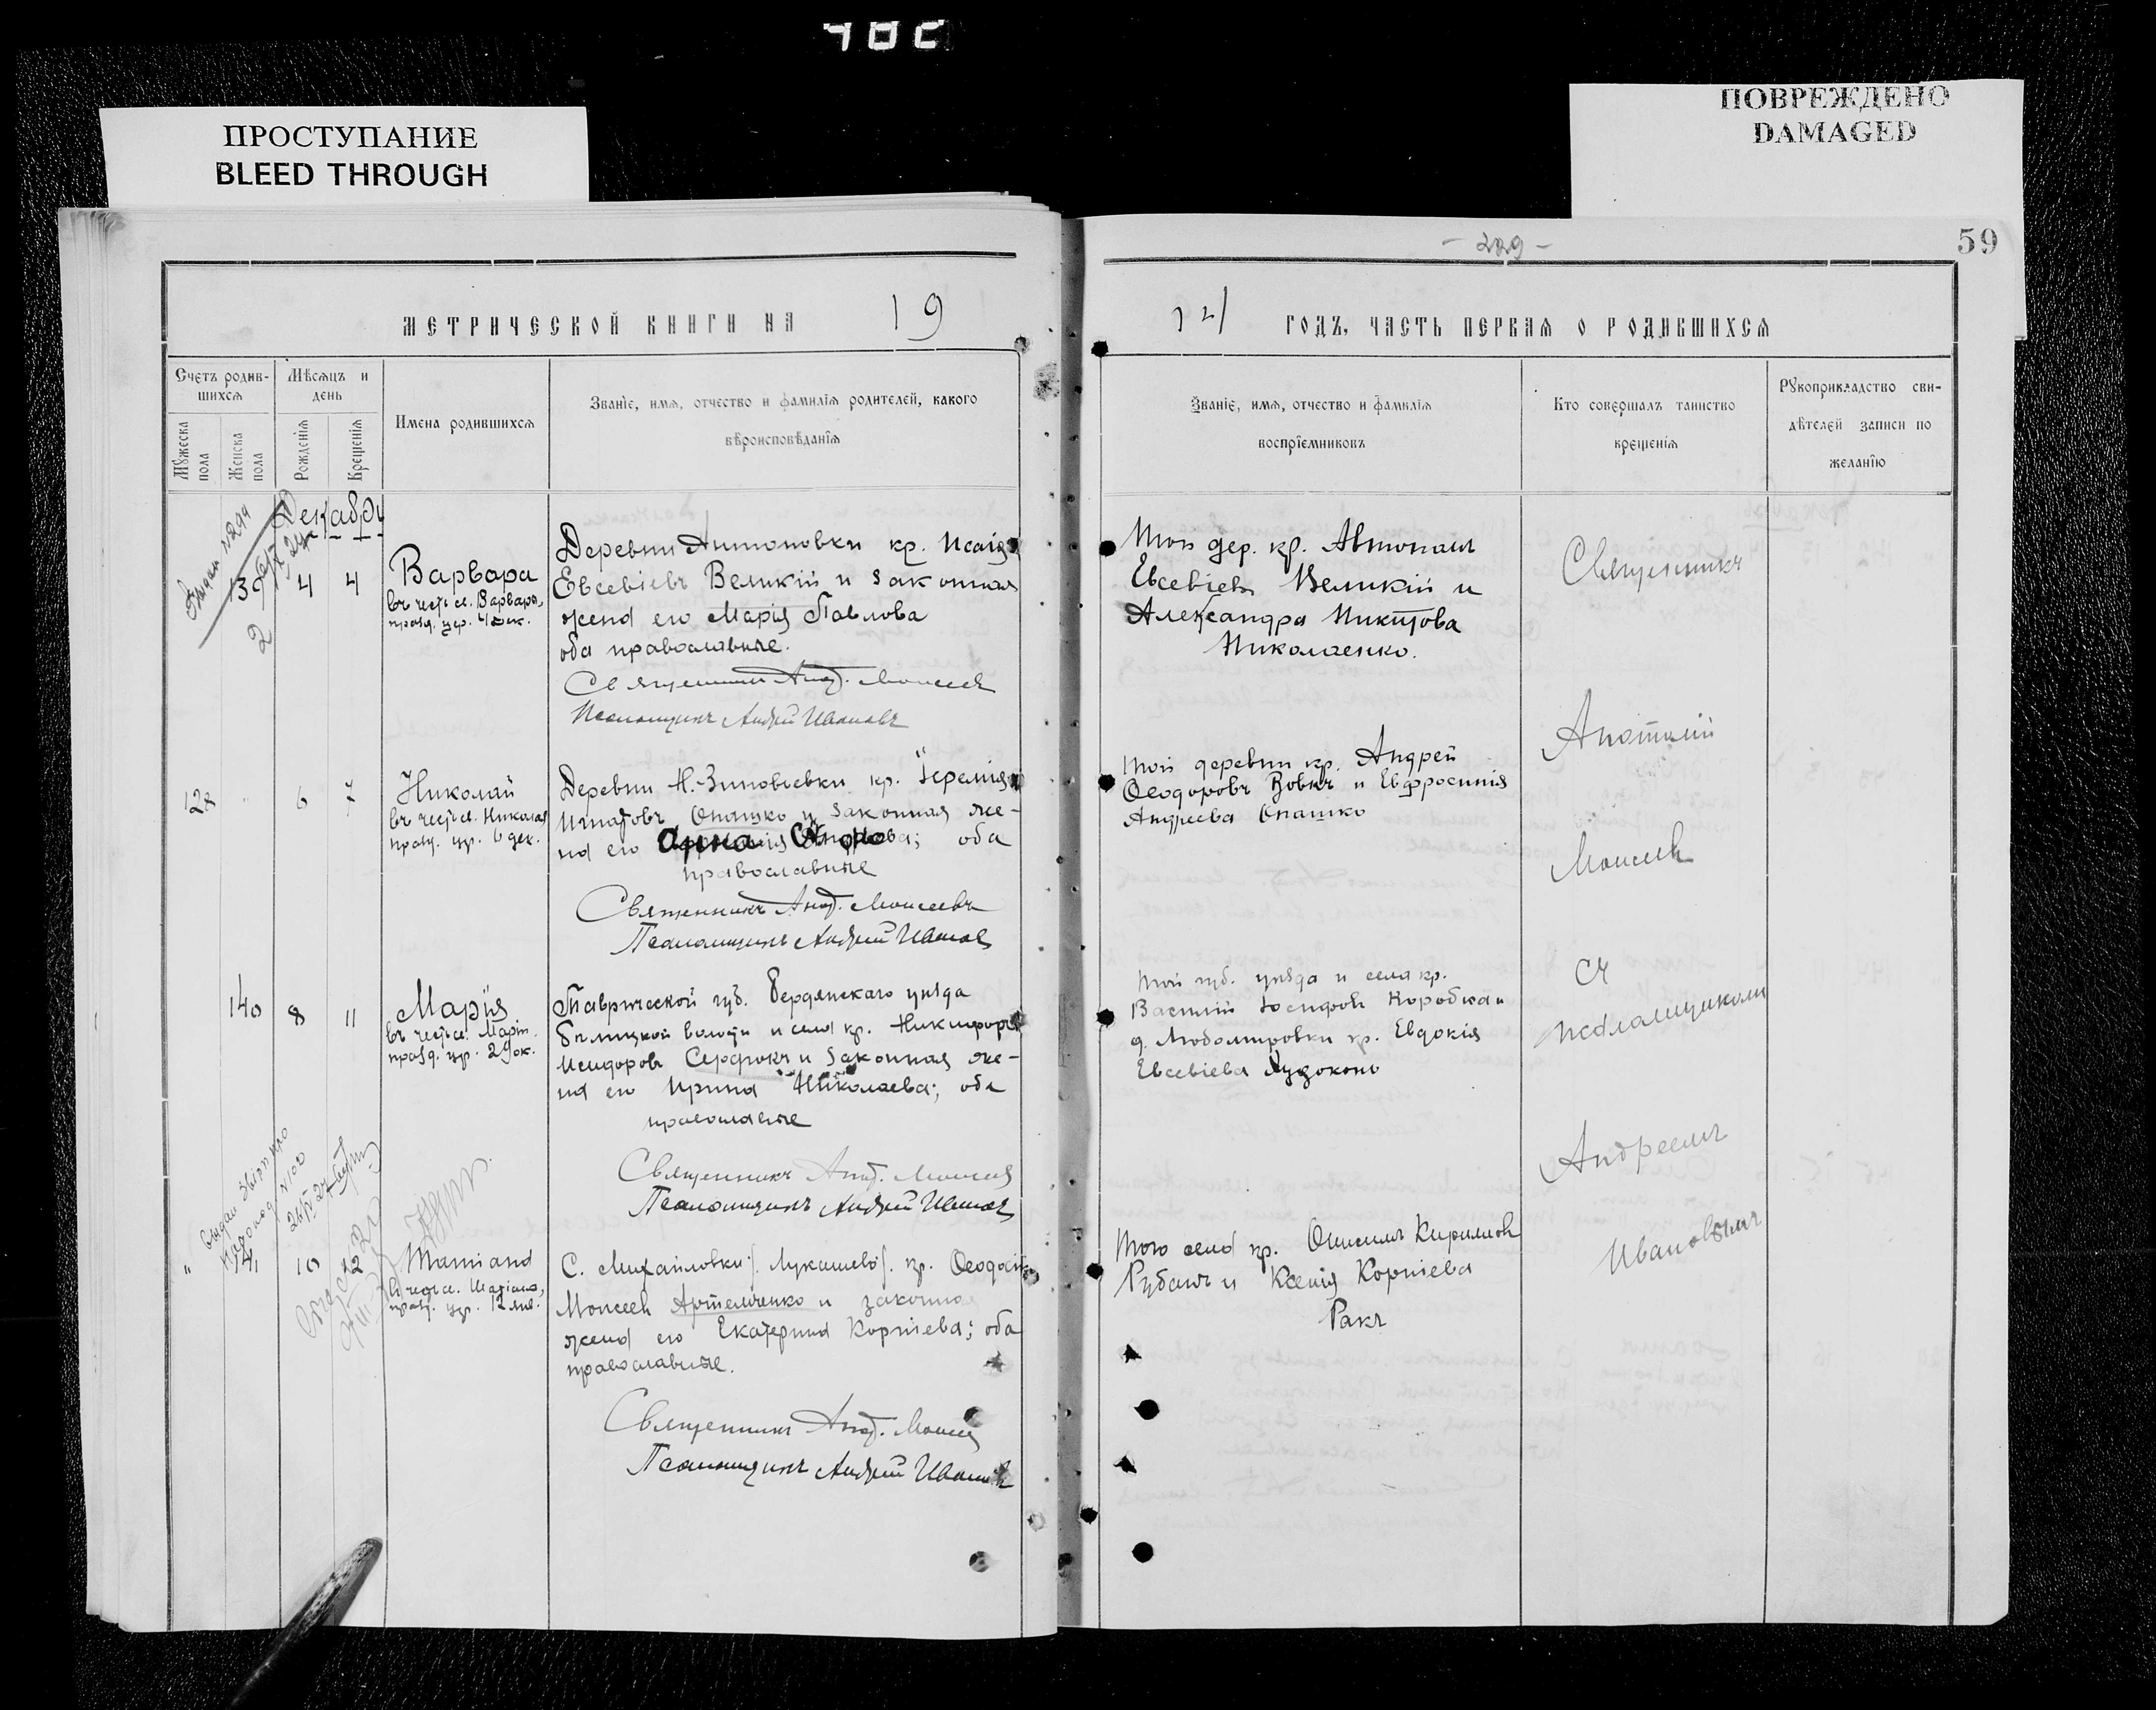 482
ПРОСТУПАНИЕ
BLEED THROUGH
ПОВРЕЖДЕНО
DAMAGED
- 229 -
59
МЕТРИЧЕСКОЙ КНИГИ НА 19
Счетъ родив-
шихся
Мѣсяцъ и
день
Мужеска
пола
Женска
пола
Рожденія
Крещенія
Имена родившихся
Званіе, имя, отчество и фамилія родителей, какого
вѣроисповѣданія
Декабрь
139 4 4
2
Варвара
въ честь св. Варвары,
празд. цер. 4 дек.
Деревни Антоновки кр. Исаія
Евсевіевъ Великій и законная
жена его Марія Павлова
оба православные.
Священникъ Анат. Моисеевъ
Псаломщикъ Андрей Ивановъ
128 " 6 7
Николай
въ честь св. Николая
празд. цр. 6 дек.
Деревни Н.-Зиновіевки кр. Іеремія
Игнатовъ Опашко и законная же-
на его Анна оба
православные
Священникъ Анат. Моисеевъ
Псаломщикъ Андрей Ивановъ
140 8 11
Марія
въ честь св. Маріи
празд. цр. 29 ок.
Таврической губ. Бердянскаго уѣзда
волости и села кр. Никифоръ
Исидоровъ Сердюкъ и законная же-
на его Ирина Николаева; оба
православные
Священникъ Анат. Моисеевъ
Псаломщикъ Андрей Ивановъ
" 141 10 12
въ честь св.
празд. цр. 12 янв.
С. Михайловки /. Лукашево /. кр. Ѳеодосій
Моисеевъ Артельченко и законная
жена его Екатерина Корніева; оба
православные.
Священникъ Анат. Моисеевъ
Псаломщикъ Андрей Ивановъ
21 ГОДЪ, ЧАСТЬ ПЕРВАЯ О РОДИВШИХСЯ
Званіе, имя, отчество и фамилія
воспріемниковъ
Кто совершалъ таинство
крещенія
Рукоприкладство сви-
дѣтелей записи по
желанію
Той дер. кр. Автономъ
Евсевіевъ Великій и
Александра Никитова
Николаенко.
Той деревни кр. Андрей
Ѳеодоровъ Вовкъ и Евфросинія
Андреева Опашко
Той губ. уѣзда и села кр.
Василій Іосифовъ Коробка и
д. Любомировки кр. Евдокія
Евсевіева
Того села кр. Онисимъ Кириловъ
Рубанъ и Ксенія Корніева
Ракъ
Священникъ
Анатолій
Моисеевъ
съ
псаломщикомъ
Андреемъ
Ивановымъ